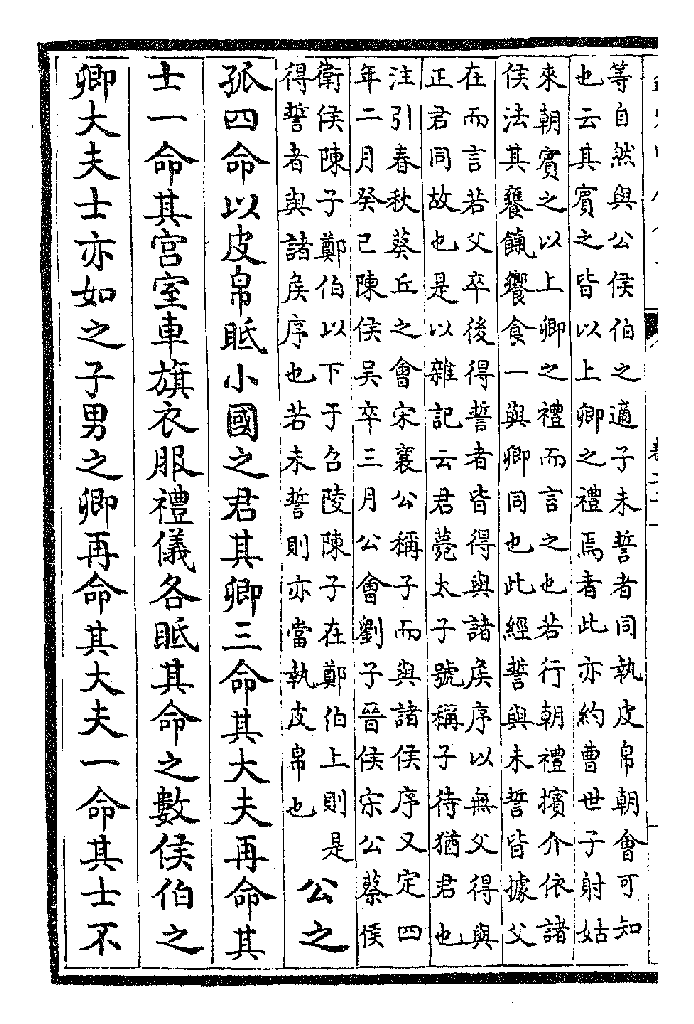 等自然與公侯伯之適子未誓者同執皮帛朝會可知
也云其賓之皆以上卿之禮焉者此亦約曹世子射姑
來朝賓之以上卿之禮而言之也若行朝禮擯介依諸
侯法其饔餼饗食一與卿同也此經誓與未誓皆據父
在而言若父卒後得誓者皆得與諸侯序以無父得與
正君同故也是以雜記云君薨太子號稱子待猶君也
注引春秋葵丘之會宋襄公稱子而與諸侯序又定四
年二月癸巳陳侯吳卒三月公會劉子晉侯宋公蔡侯
衛侯陳子鄭伯以下于召陵陳子在鄭伯上則是
得誓者與諸侯序也若未誓則亦當執皮帛也
公之
孤四命以皮帛眡小國之君其卿三命其大夫再命其
士一命其宮室車旗衣服禮儀各眡其命之數侯伯之
卿大夫士亦如之子男之卿再命其大夫一命其士不